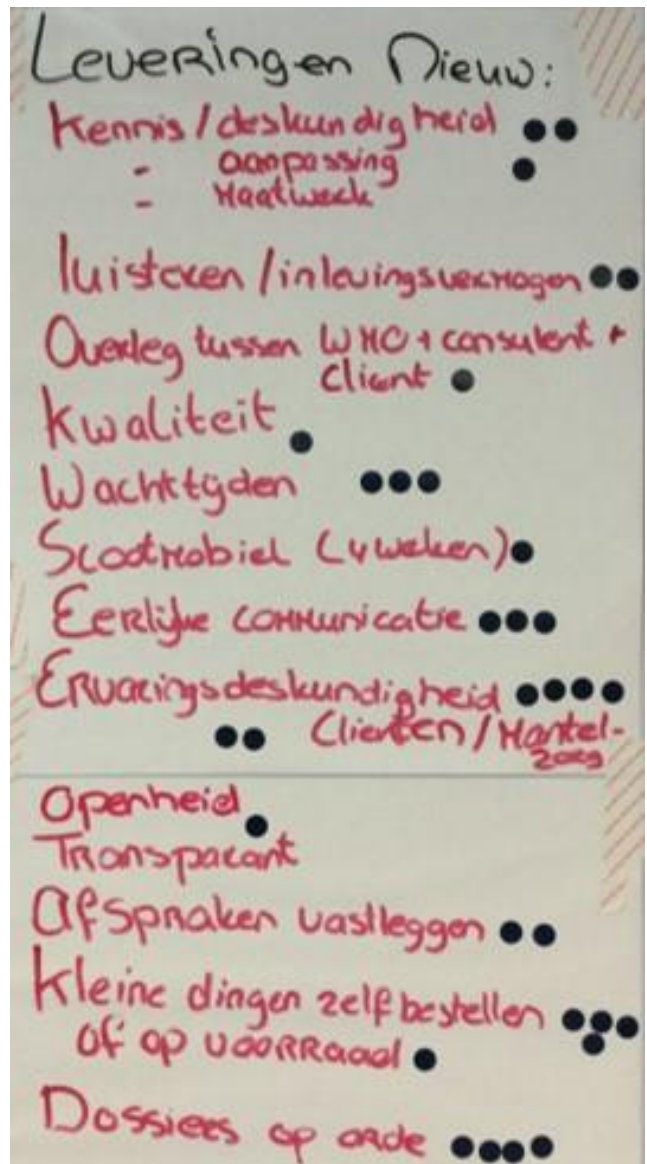 Leveringen Nieuw:
Kennis/deskundigheid
- aanpassing
- Maatwerk
luisteren/inlevingsvermogen
Overleg tussen WMO + consulent +
Client
Kwaliteit
Wachttijden
Scootmobiel (4 weken)
Eerlijke communicatie
Ervaringsdeskundigheid
Clienten/Mantel-
zorg
Openheid
Transparant
Afspraken vastleggen
Kleine dingen zelf bestellen
of op voorraad
Dossiers op orde